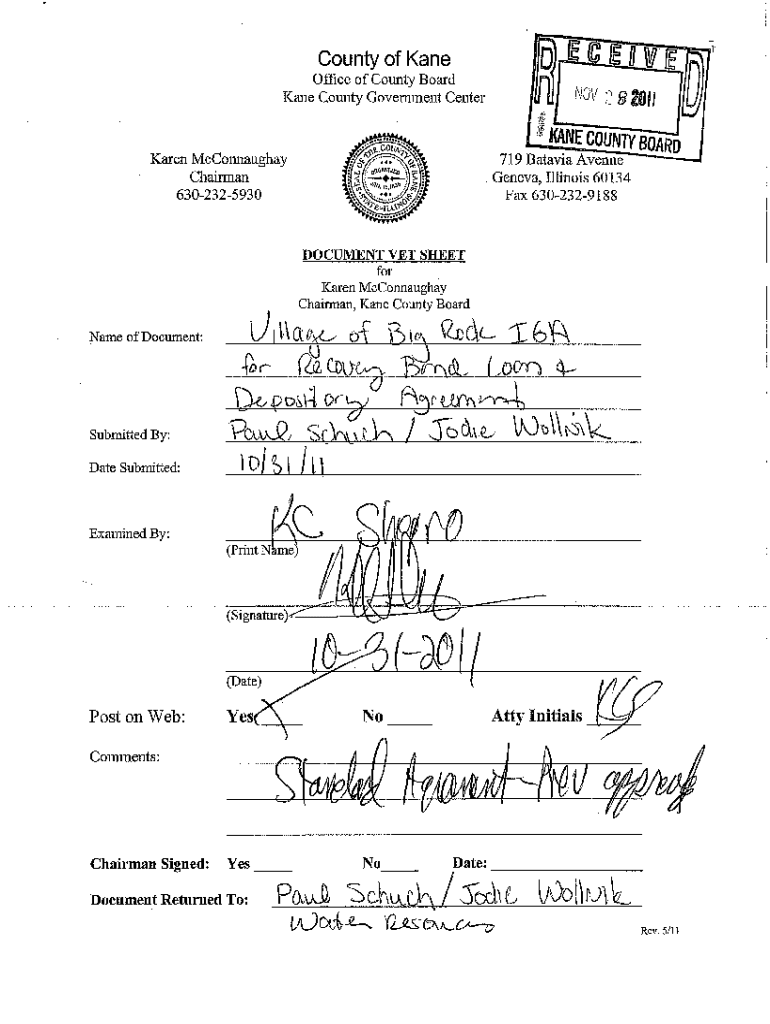 County of Kane
Office of County Board
Kane County Government Center
RECEIVED
NOV 28 2011
KANE COUNTY BOARD
Karen McConnaughay
Chairman
630-232-5930
SEAL OF THE COUNTY OF KANE
STATE-ILLINOIS
719 Batavia Avenue
Geneva, Illinois 60134
Fax 630-232-9188
DOCUMENT VET SHEET
for
Karen McConnaughay
Chairman, Kane County Board
Name of Document: Village of Big Rock IGA
for Recovery Bond Loan &
Depository Agreement
Submitted By: Paul Schuch / Jodie Wollnik
Date Submitted: 10/31/11
Examined By: KC Shapiro
(Print Name)
(Signature)
10-31-2011
(Date)
Post on Web: Yes X No Atty Initials KCS
Comments:
Standard Agreement - Prev approved
Chairman Signed: Yes No Date:
Document Returned To: Paul Schuch / Jodie Wollnik
Water Resources
Rev. 5/11